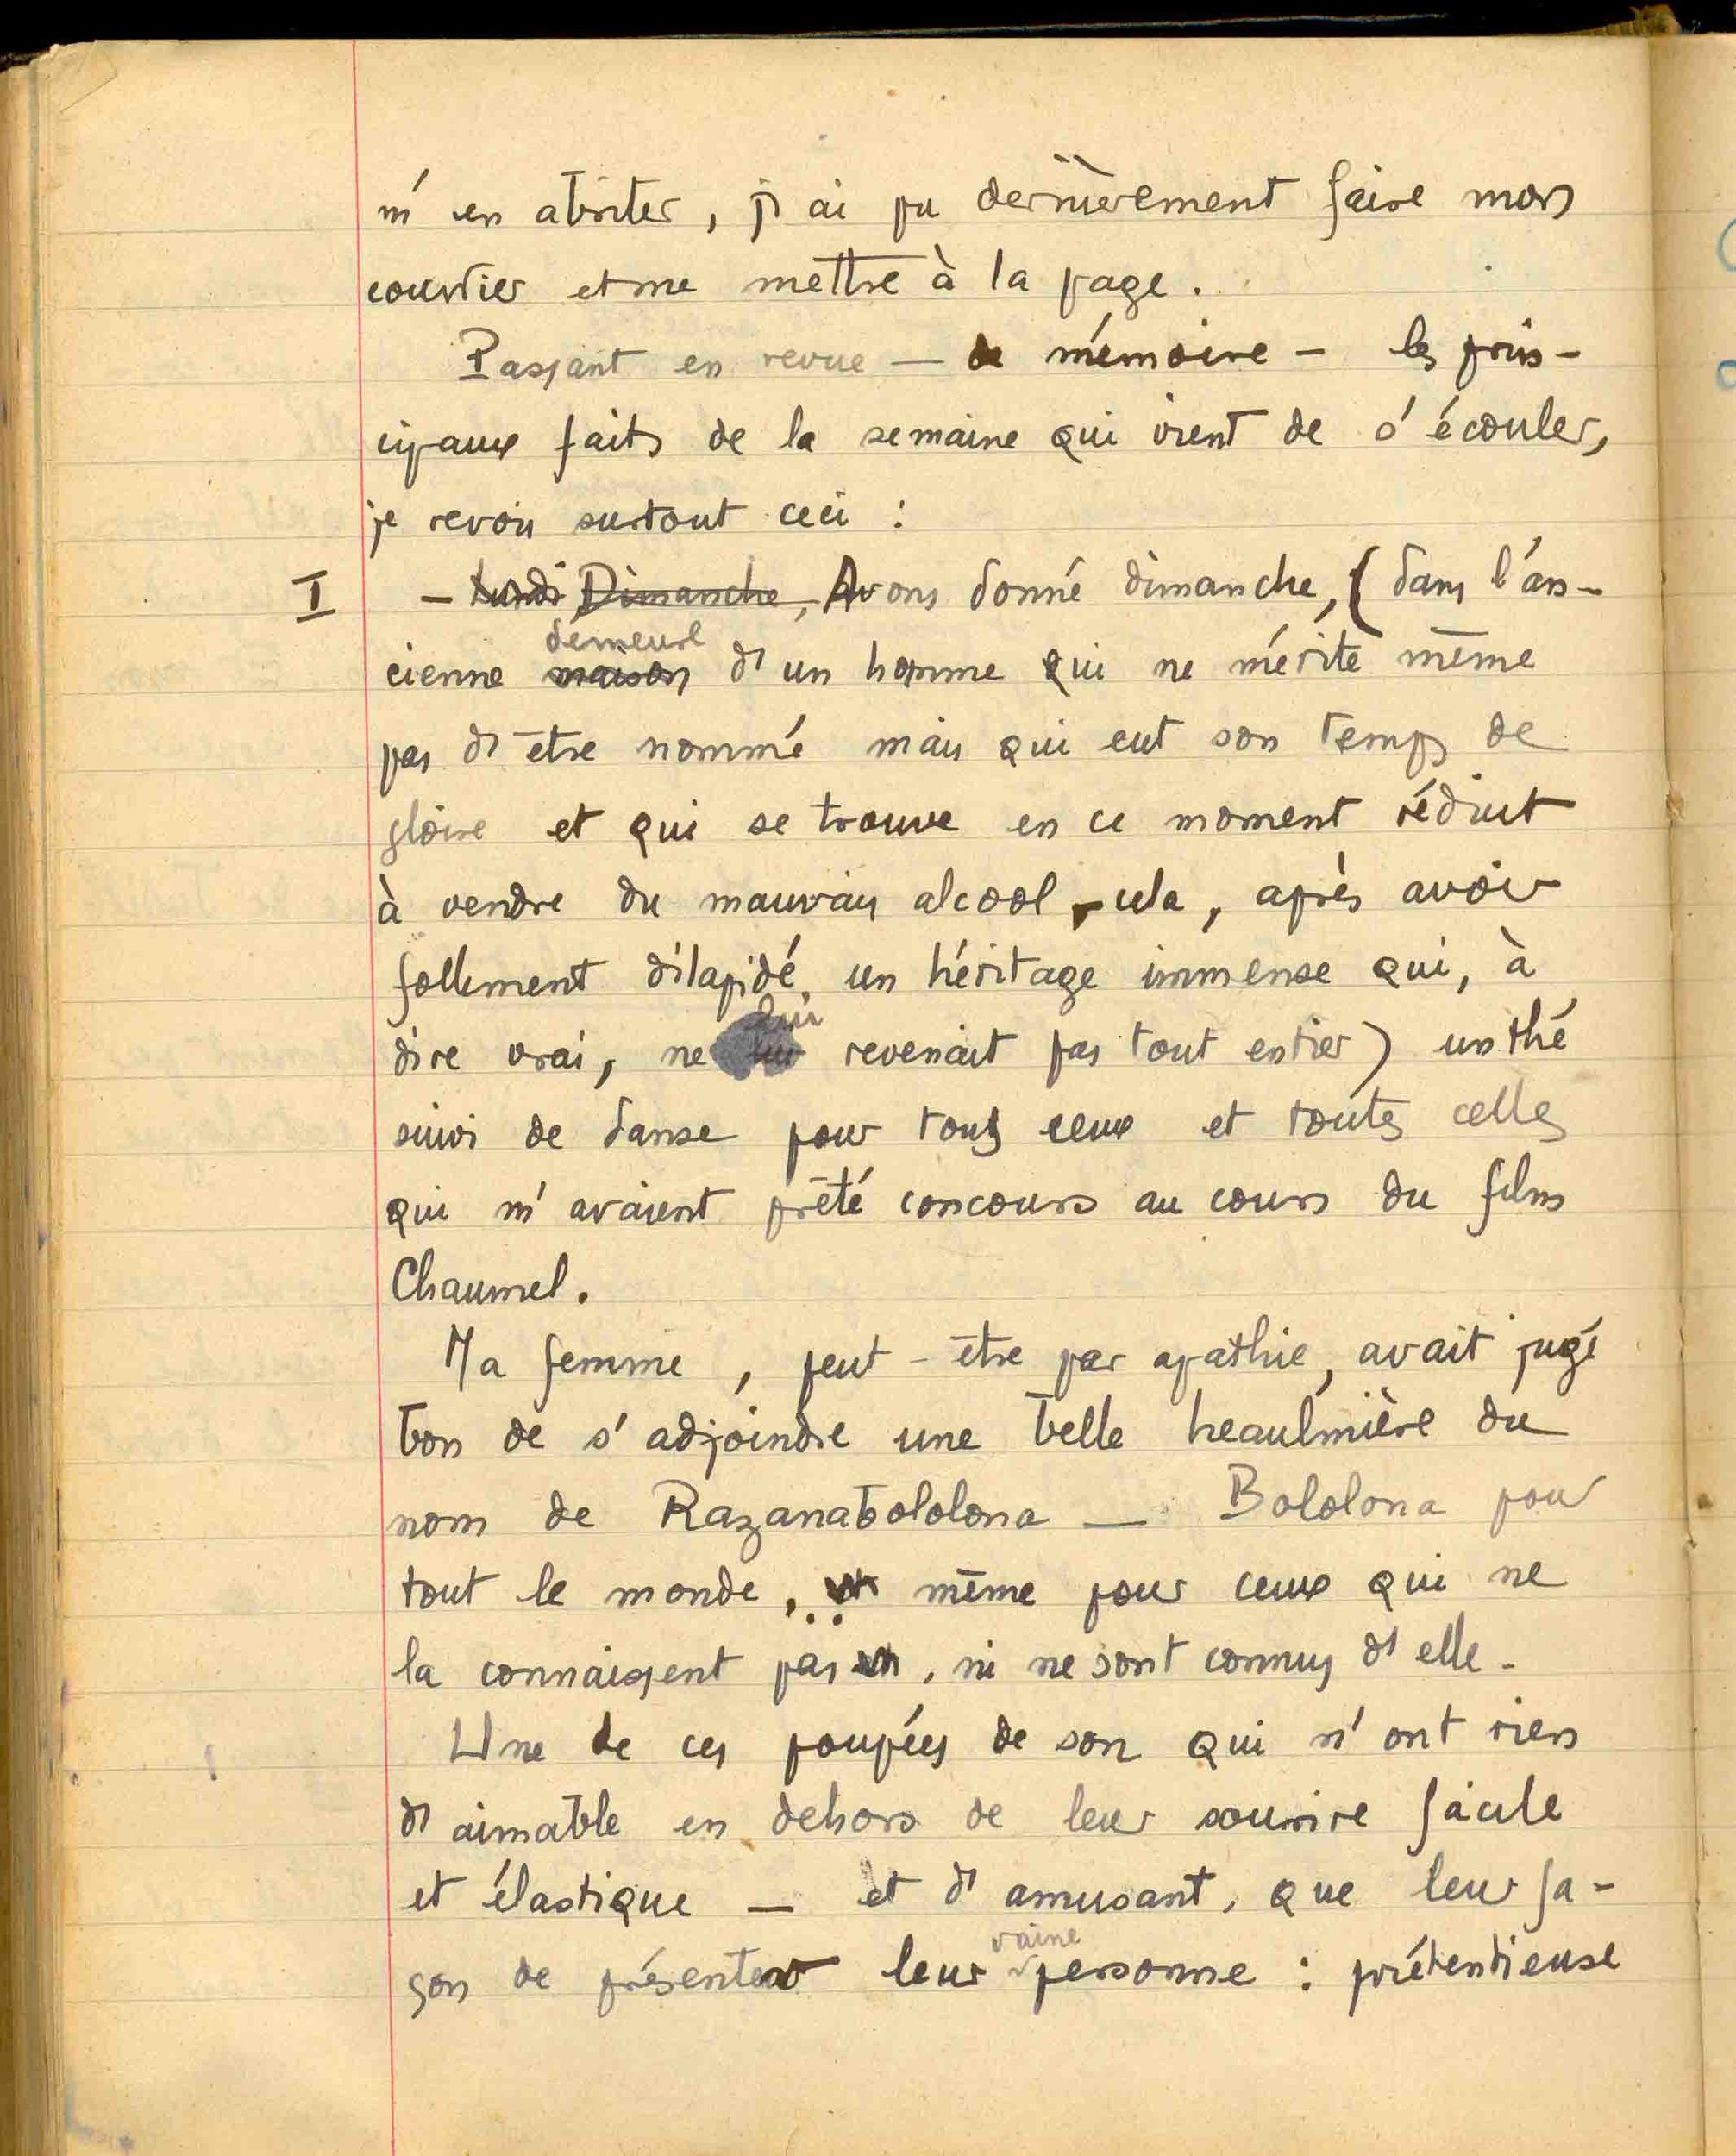 m'en abriter, j'ai pu dernièrement faire mon
courrier et me mettre à la page.
Passant en revue — de mémoire — les prin-
cipaux faits de la semaine qui vient de s'écouler,
je revois surtout ceci :
I — Lundi Dimanche, Avons donné dimanche, (dans l'an-
demeure
cienne maison d'un homme qui ne mérite même
pas d'être nommé mais qui eut son temps de
gloire et qui se trouve en ce moment réduit
à vendre du mauvais alcool, cela, après avoir
follement dilapidé un héritage immense qui, à
lui
dire vrai, ne lui revenait pas tout entier) un thé
suivi de danse pour tous ceux et toutes celles
qui m'avaient prêté concours au cours du film
Chaumel.
Ma femme, peut-être par apathie, avait jugé
bon de s'adjoindre une belle heaulmière du
nom de Razanabololona — Bololona pour
tout le monde, même pour ceux qui ne
la connaissent pas, ni ne sont connus d'elle.
Une de ces poupées de son qui n'ont rien
d'aimable en dehors de leur sourire facile
et élastique — et d'amusant, que leur fa-
vaine
çon de présenter leur personne : prétentieuse